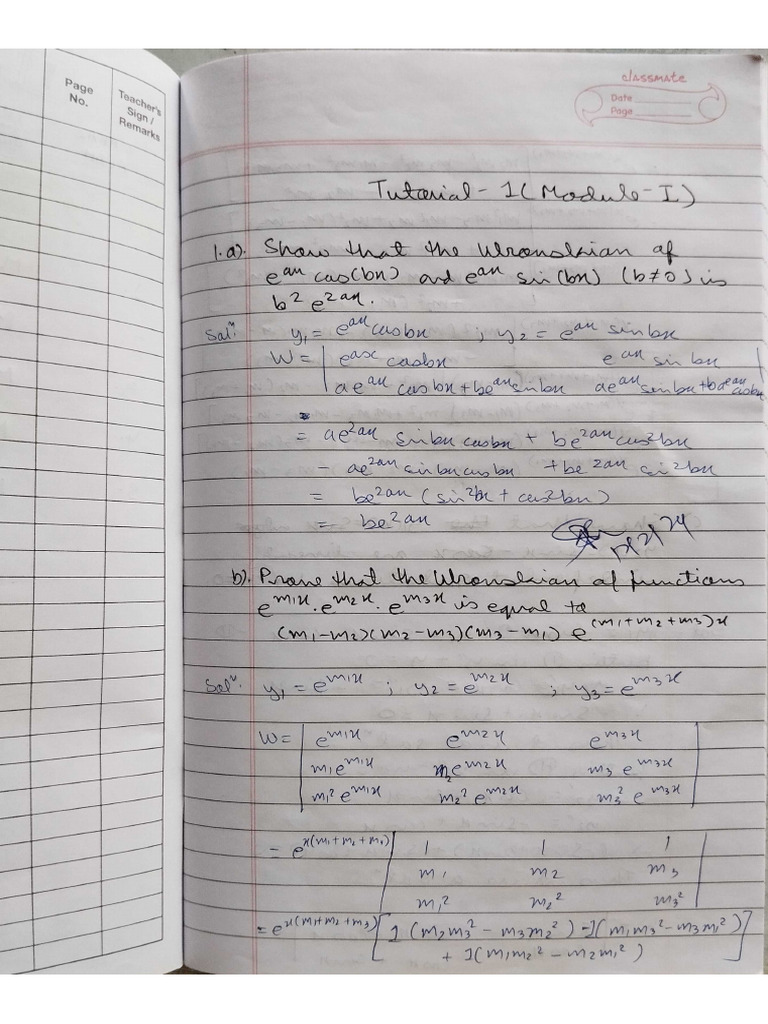 Page
No.
Teacher's
Sign /
Remarks
classmate
Date
Page
Tutorial - 1 (Module - I)
1.a). Show that the Wronskian of
e^{ax} cos(bx) and e^{ax} sin(bx) (b≠0) is
b² e^{2ax}.
Solⁿ: y₁ = e^{ax} cosbx ; y₂ = e^{ax} sinbx
W = | e^{ax} cosbx e^{ax} sinbx |
| ae^{ax} cosbx + be^{ax} sinbx ae^{ax} sinbx + be^{ax} cosbx |
= ae^{2ax} sinbx cosbx + be^{2ax} cos²bx
- ae^{2ax} sinbx cosbx + be^{2ax} si²bx
= be^{2ax} (si²bx + cos²bx)
= be^{2ax}
b). Prove that the Wronskian of functions
e^{m₁x}. e^{m₂x}. e^{m₃x} is equal to
(m₁-m₂)(m₂-m₃)(m₃-m₁) e^{(m₁+m₂+m₃)x}
Solⁿ: y₁ = e^{m₁x} ; y₂ = e^{m₂x} ; y₃ = e^{m₃x}
W = | e^{m₁x} e^{m₂x} e^{m₃x} |
| m₁e^{m₁x} m₂e^{m₂x} m₃ e^{m₃x} |
| m₁² e^{m₁x} m₂² e^{m₂x} m₃² e^{m₃x} |
= e^{x(m₁+m₂+m₃)} | 1 1 1 |
| m₁ m₂ m₃ |
| m₁² m₂² m₃² |
= e^{x(m₁+m₂+m₃)} [ 1 (m₂m₃² - m₃m₂²) - 1(m₁m₃² - m₃m₁²)
+ 1(m₁m₂² - m₂m₁²) ]